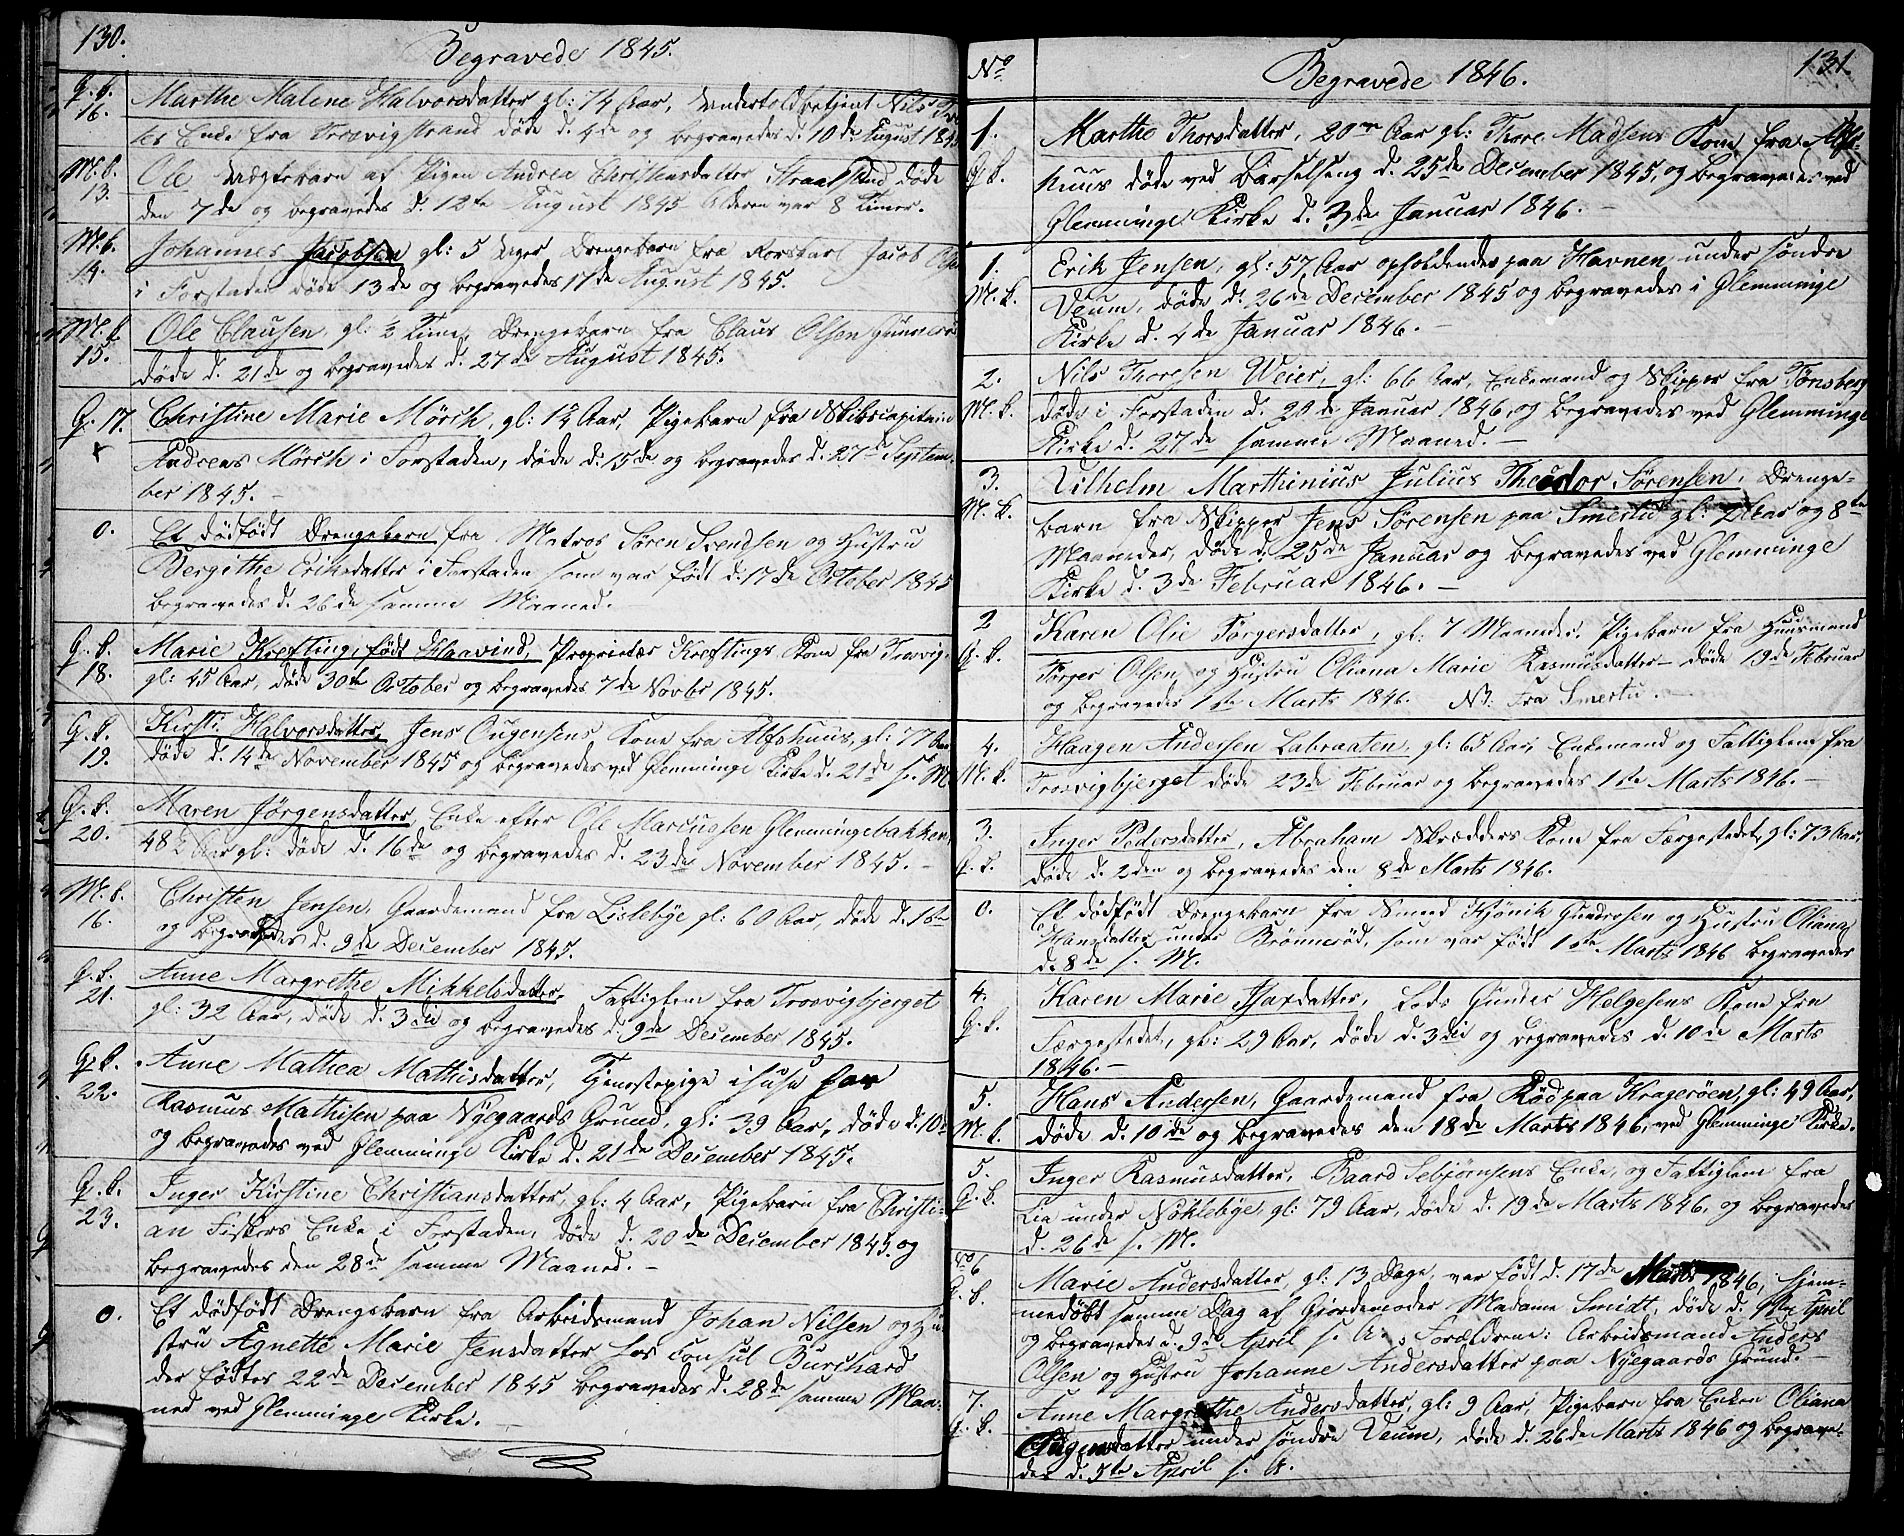 130.
Begravede 1845.
Q. k. 16. Marthe Malene Halvorsdatter gl: 74 Aar, Undertoldbetjent Nils
Enke fra Trosvigstrand døde d. 4de og begravedes d. 10de August 1845
M. k. 13. Ole Uægtebarn af Pigen Andrea Christensdatter døde
den 7de og begravedes d. 12te August 1845 Alderen var 8 Timer.
M. k. 14. Johannes Jacobsen gl: 5 Uger Drengebarn fra Jacob
i Forstaden døde 13de og begravedes 17de August 1845.
M. k. 15. Ole Clausen, gl: ½ Time, Drengebarn fra Claus Olsen
døde d. 21de og begravedes d. 27de August 1845.
Q. 17. Christine Marie Mörch, gl: 1½ Aar, Pigebarn fra Skibscapitain
Andreas Mörch i Forstaden, døde d. 15de og begravedes d. 27de Septem-
ber 1845. –
0. Et dødfødt Drengebarn fra Matros Sören Svendsen og Hustru
Bergithe Eriksdatter i Forstaden som var født d. 17de October 1845
begravedes d. 26de samme Maaned.
Q. k. 18. Marie Krefting, født Haavind, Proprietær Kreftings Kone fra Trosvig
gl: 45 Aar, døde 30te October og begravedes 7de Novbr 1845.
Q. k. 19. Kirsti Halvorsdatter, Jens Ougensens Kone fra Alfshuus, gl: 77 Aar
døde d. 14de November 1845 og begravedes ved Glemminge Kirke d. 21de s. M.
Q. k. 20. Maren Jörgensdatter, Enke efter Ole Marcusen Glemmingebakken,
48½ Aar gl: døde d. 16de og begravedes d. 23de November 1845. –
M. k. 16. Christen Jensen, Gaardemand fra Lislebye gl: 60 Aar, døde d. 1ste
og begravedes d. 9de December 1845.
Q. k. 21. Anne Margrethe Mikkelsdatter, Fattiglem fra Trosvigbjerget
gl: 32 Aar, døde d. 3die og begravedes d. 9de December 1845.
Q. k. 22. Anne Mathea Mathisdatter, Tjenestepige i huse hos
Rasmus Mathisen paa Nyegaards Grund, gl: 39 Aar, døde d. 10de
og begravedes ved Glemminge Kirke d. 21de December 1845.
Q. k. 23. Inger Kirstine Christiansdatter, gl: 4 Aar, Pigebarn fra Christi-
an Fiskers Enke i Forstaden, døde d. 20de December 1845. og
begravedes den 28de samme Maaned. –
0. Et dødfødt Drengebarn fra Arbeidsmand Johan Nilsen og Hu-
stru Agnethe Marie Jensdatter hos Consul Burchard
der fødtes 22de December 1845 begravedes d. 28de samme Maa-
ned ved Glemminge Kirke.
No
Begravede 1846.
131.
1. Q k. Marthe Thorsdatter, 20 Aar gl: Thore Madsens Kone fra Alfs-
huus døde ved Barselseng d. 25de December 1845, og begravedes ved
Glemminge Kirke d. 3de Januar 1846. –
1. M. k. Erik Jensen, gl: 57 Aar opholdendes paa Havnen under söndre
Veum, døde d. 26de December 1845 og begravedes i Glemminge
Kirke d. 4de Januar 1846. –
2. M. k. Nils Thoresen Weier, gl: 66 Aar, Enkemand og Skipper fra Tønsberg
døde i Forstaden d. 20de Januar 1846, og begravedes ved Glemminge
Kirke d. 27de samme Maaned. –
3. M. k. Vilhelm Marthinius Julius Theodor Sörensen, Drenge-
barn fra Skipper Jens Sörensen paa Smertu gl: 2 Aar og 8te
Maaneder, døde d. 25de Januar og begravedes ved Glemminge
Kirke d. 3de Februar 1846. –
2 Q. k. Karen Olie Törgersdatter, gl: 7 Maaneder, Pigebarn fra Huusmand
Törger Olsen og Hustru Oliana Marie Rasmusdatter – døde 19de Februar
og begravedes 1ste Marts 1846. NB. Fra Smertu. –
4. M. k. Haagen Andersen Labraaten, gl: 65 Aar, Enkemand og Fattiglem fra
Trosvigbjerget døde 23de Februar og begravedes 1ste Marts 1846. –
3. Q. k. Inger Pedersdatter, Abraham Skrædders Kone fra Færgestedet, gl: 73 Aar,
døde d. 2den og begravedes den 8de Marts 1846.
0. Et dødfødt Drengebarn fra Kjönik Gundersen og Hustru Oliana
Hansdatter under Brönneröd, som var født 1ste Marts 1846 begravedes
d. 8de s. M.
4. Q. k. Karen Marie Isaxdatter, Lods Gunder Helgesens Kone fra
Færgestedet, gl: 29 Aar, døde d. 3die og begravedes d. 10de Marts
1846. –
5. M. k. Hans Andersen, Gaardemand fra Röd paa Kragerøen, gl: 49 Aar,
døde d. 10de og begravedes den 18de Marts 1846, ved Glemminge Kirke.
5. Q. k. Inger Rasmusdatter, Baard Sebjörnsens Enke, og Fattiglem fra
Lia under Noklebye, gl: 79 Aar, døde d. 19de Marts 1846, og begravedes
d. 26de s. M.
No 6 Q. k. Marie Andersdatter, gl: 13 Dage, var født d. 17de Marts 1846, hjem-
medøbt samme Dag af Gjordemoder Madame Smidt, døde d. April
og begravedes d. 9de April s. A. Forældrene: Arbeidsmand Anders
Olsen og Hustru Johanne Andersdatter paa Nyegaards Grund. –
7. Q. k. Anne Margrethe Andersdatter, gl: 9 Aar, Pigebarn fra Enken Oliana
Augensdatter under söndre Veum, døde d. 26de Marts 1846 og begrave-
des d. 5te April s. A.